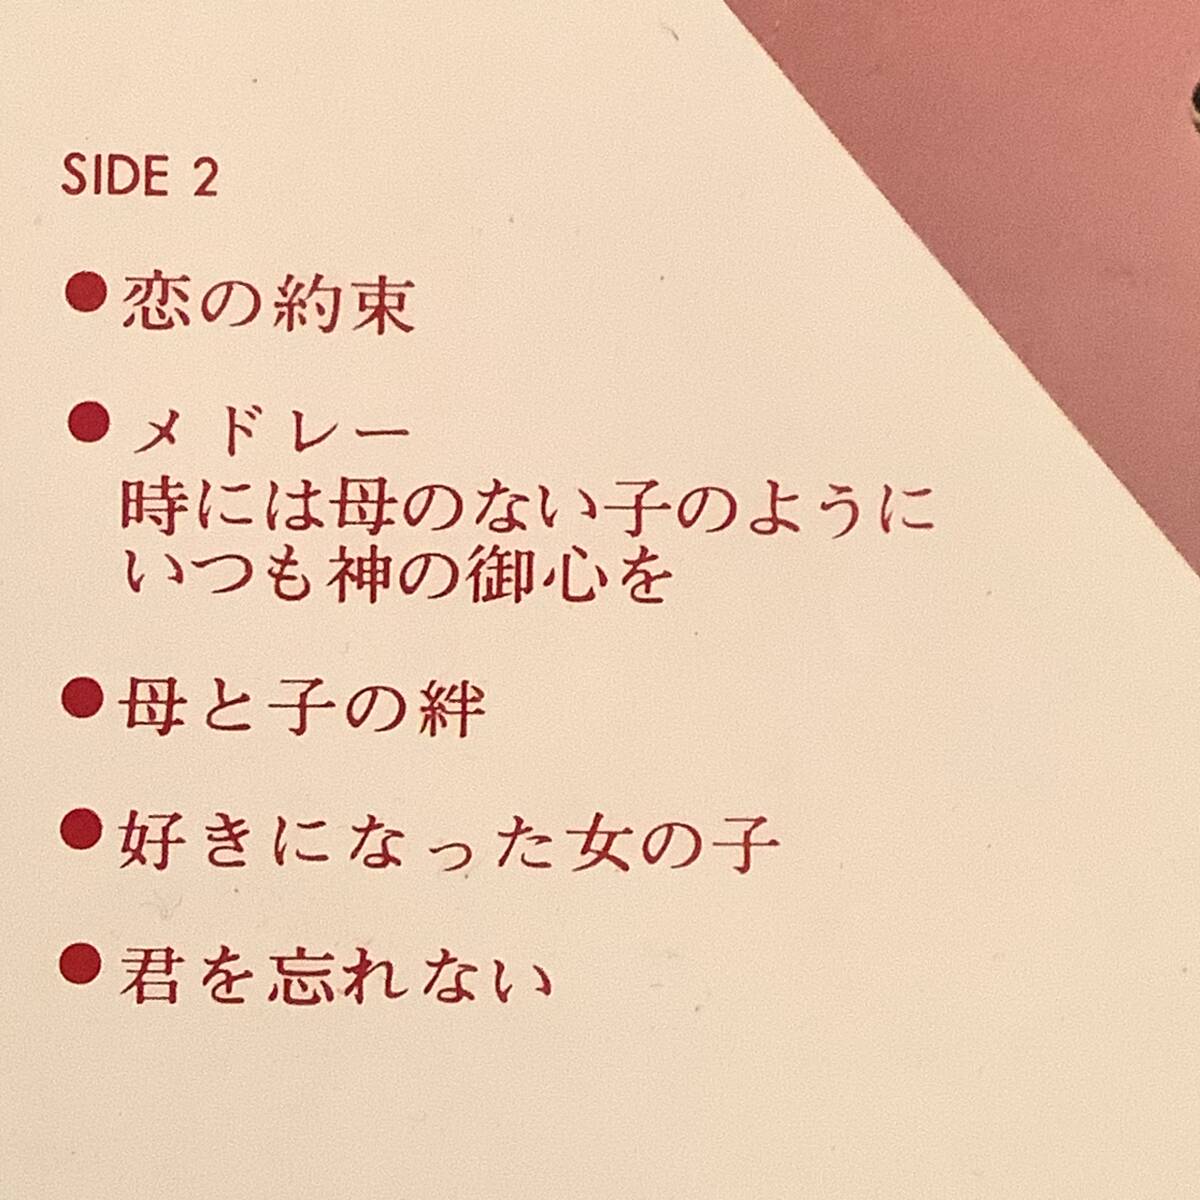 SIDE 2
●恋の約束
●メドレー
時には母のない子のように
いつも神の御心を
●母と子の絆
●好きになった女の子
●君を忘れない